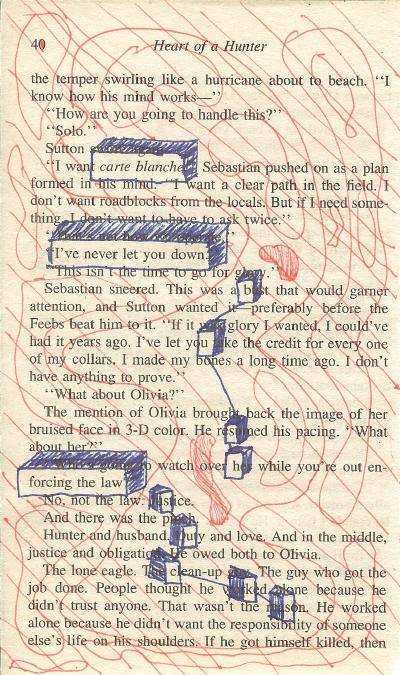 40
Heart of a Hunter
the temper swirling like a hurricane about to beach. “I
know how his mind works—”
“How are you going to handle this?”
“Solo.”
Sutton
“I want carte blanche Sebastian pushed on as a plan
formed in his mind. “I want a clear path in the field. I
don’t want roadblocks from the locals. But if I need some-
thing, I don’t want to have to ask twice.”
“I’ve never let you down.
“This isn’t the time to go for glory.”
Sebastian sneered. This was a bust that would garner
attention, and Sutton wanted it preferably before the
Feebs beat him to it. “If it was glory I wanted, I could’ve
had it years ago. I’ve let you take the credit for every one
of my collars. I made my bones a long time ago. I don’t
have anything to prove.”
“What about Olivia?”
The mention of Olivia brought back the image of her
bruised face in 3-D color. He resumed his pacing. “What
about her?”
to watch over her while you’re out en-
forcing the law
No, not the law. Justice.
And there was the pinch.
Hunter and husband. Duty and love. And in the middle,
justice and obligation. He owed both to Olivia.
The lone eagle. The clean-up The guy who got the
job done. People thought he worked alone because he
didn’t trust anyone. That wasn’t the reason. He worked
alone because he didn’t want the responsibility of someone
else’s life on his shoulders. If he got himself killed, then